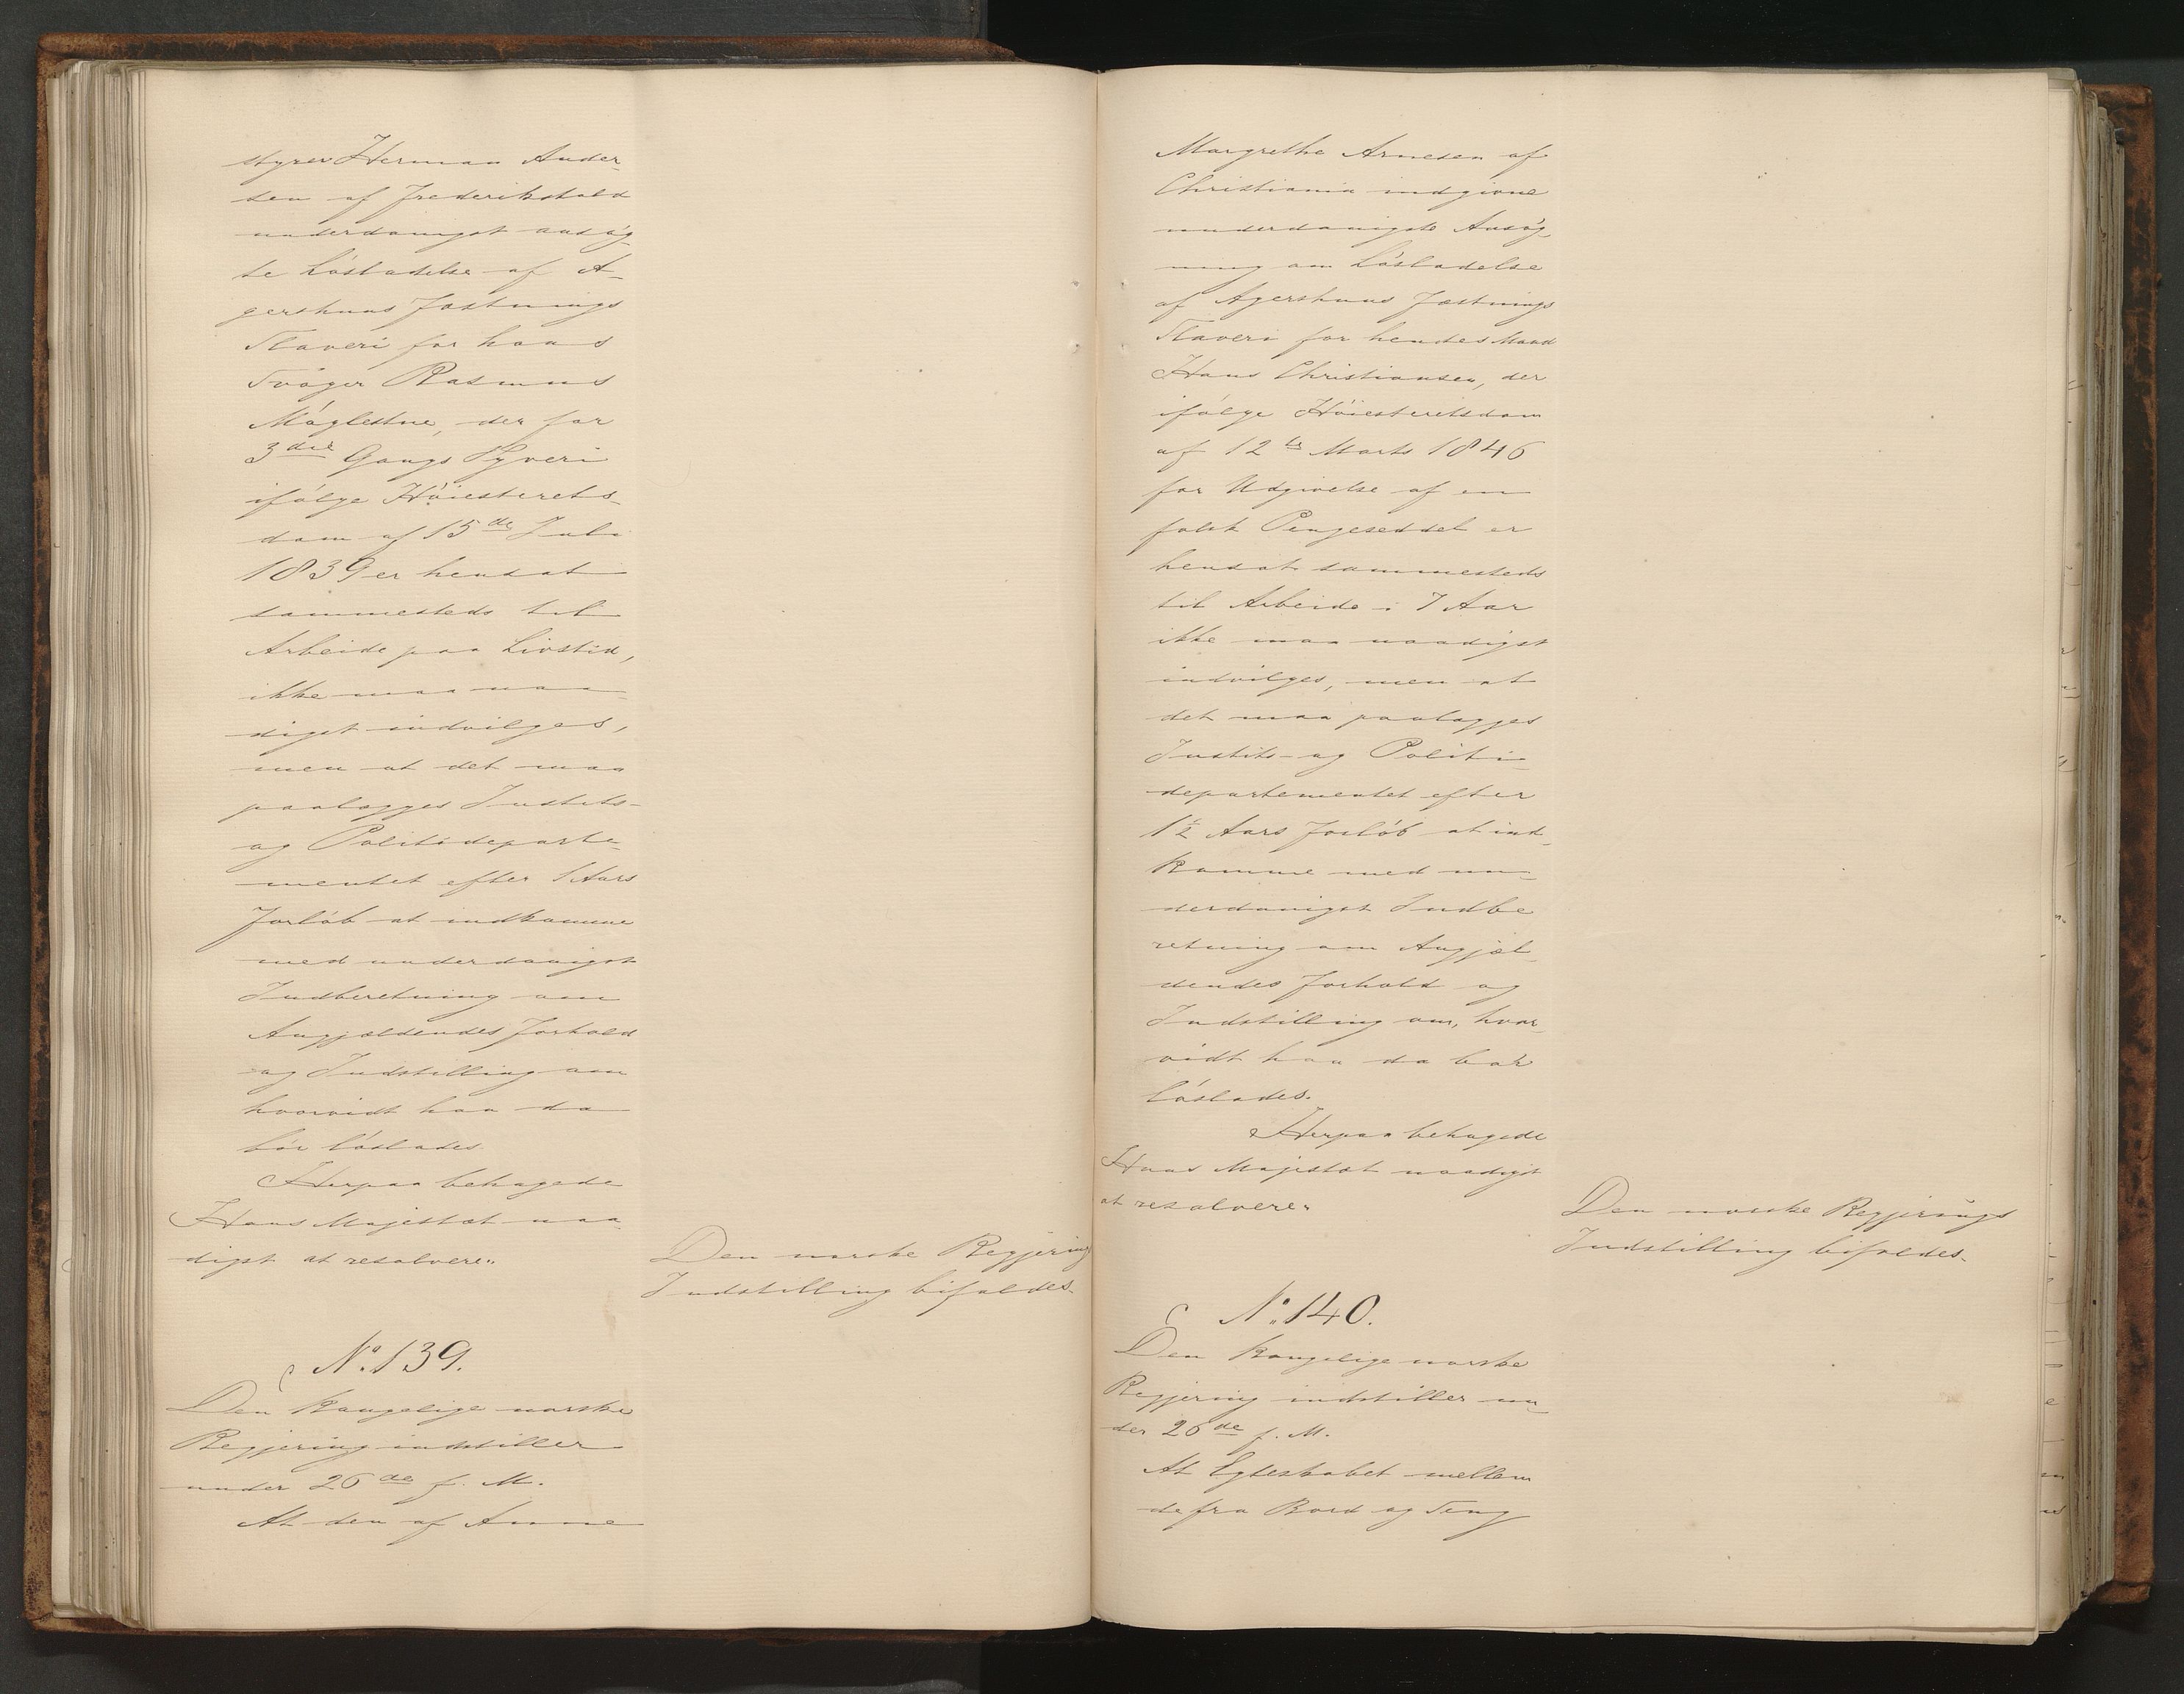 styrer Herman Ander-
sen af Frederikshald
underdanigst ansøg-
te Løsladelse af A-
gershuus Fæstnings
Slaveri for hans
Svoger Rasmus
Møglestue, der for
3die Gangs Tyveri
ifølge Høiesterets-
dom af 15de Juli
1839 er hensat
sammesteds til
Arbeide paa Livstid,
ikke maa naa-
digst indvilges,
men at det maa
paalægges Justits-
og Politideparte-
mentet efter 1 Aars
Forløb at indkomme
med underdanigst
Indberetning om
Angjældendes Forhold
og Indstilling om
hvorvidt han da
bør løslades.
Herpaa behagede
Hans Majestæt naa-
digst at resolvere:
Den norske Regjerings
Indstilling bifaldes.
No. 139.
Den kongelige norske
Regjering indstiller
under 26de f. M.
At den af Anne
Margrethe Arnesen af
Christiania indgivne
underdanigste Ansøg-
ning om Løsladelse
af Agershuus Fæstnings
Slaveri for hendes Mand
Hans Christiansen, der
ifølge Høiesteretsdom
af 12te Marts 1846
for Udgivelse af en
falsk Pengeseddel er
hensat sammesteds
til Arbeide i 7 Aar
ikke maa naadigst
indvilges, men at
det maa paalægges
Justits- og Politi-
departementet efter
1½ Aars Forløb at ind-
komme med un-
derdanigst Indbe
retning om Angjæl-
dendes Forhold og
Indstilling om, hvor-
vidt han da bør
løslades.
Herpaa behagede
Hans Majestæt naadigst
at resolvere:
Den norske Regjerings
Indstilling bifaldes.
No. 140.
Den kongelige norske
Regjering indstiller un-
der 26de f. M.
At Egteskabet mellem
de fra Bord og Seng